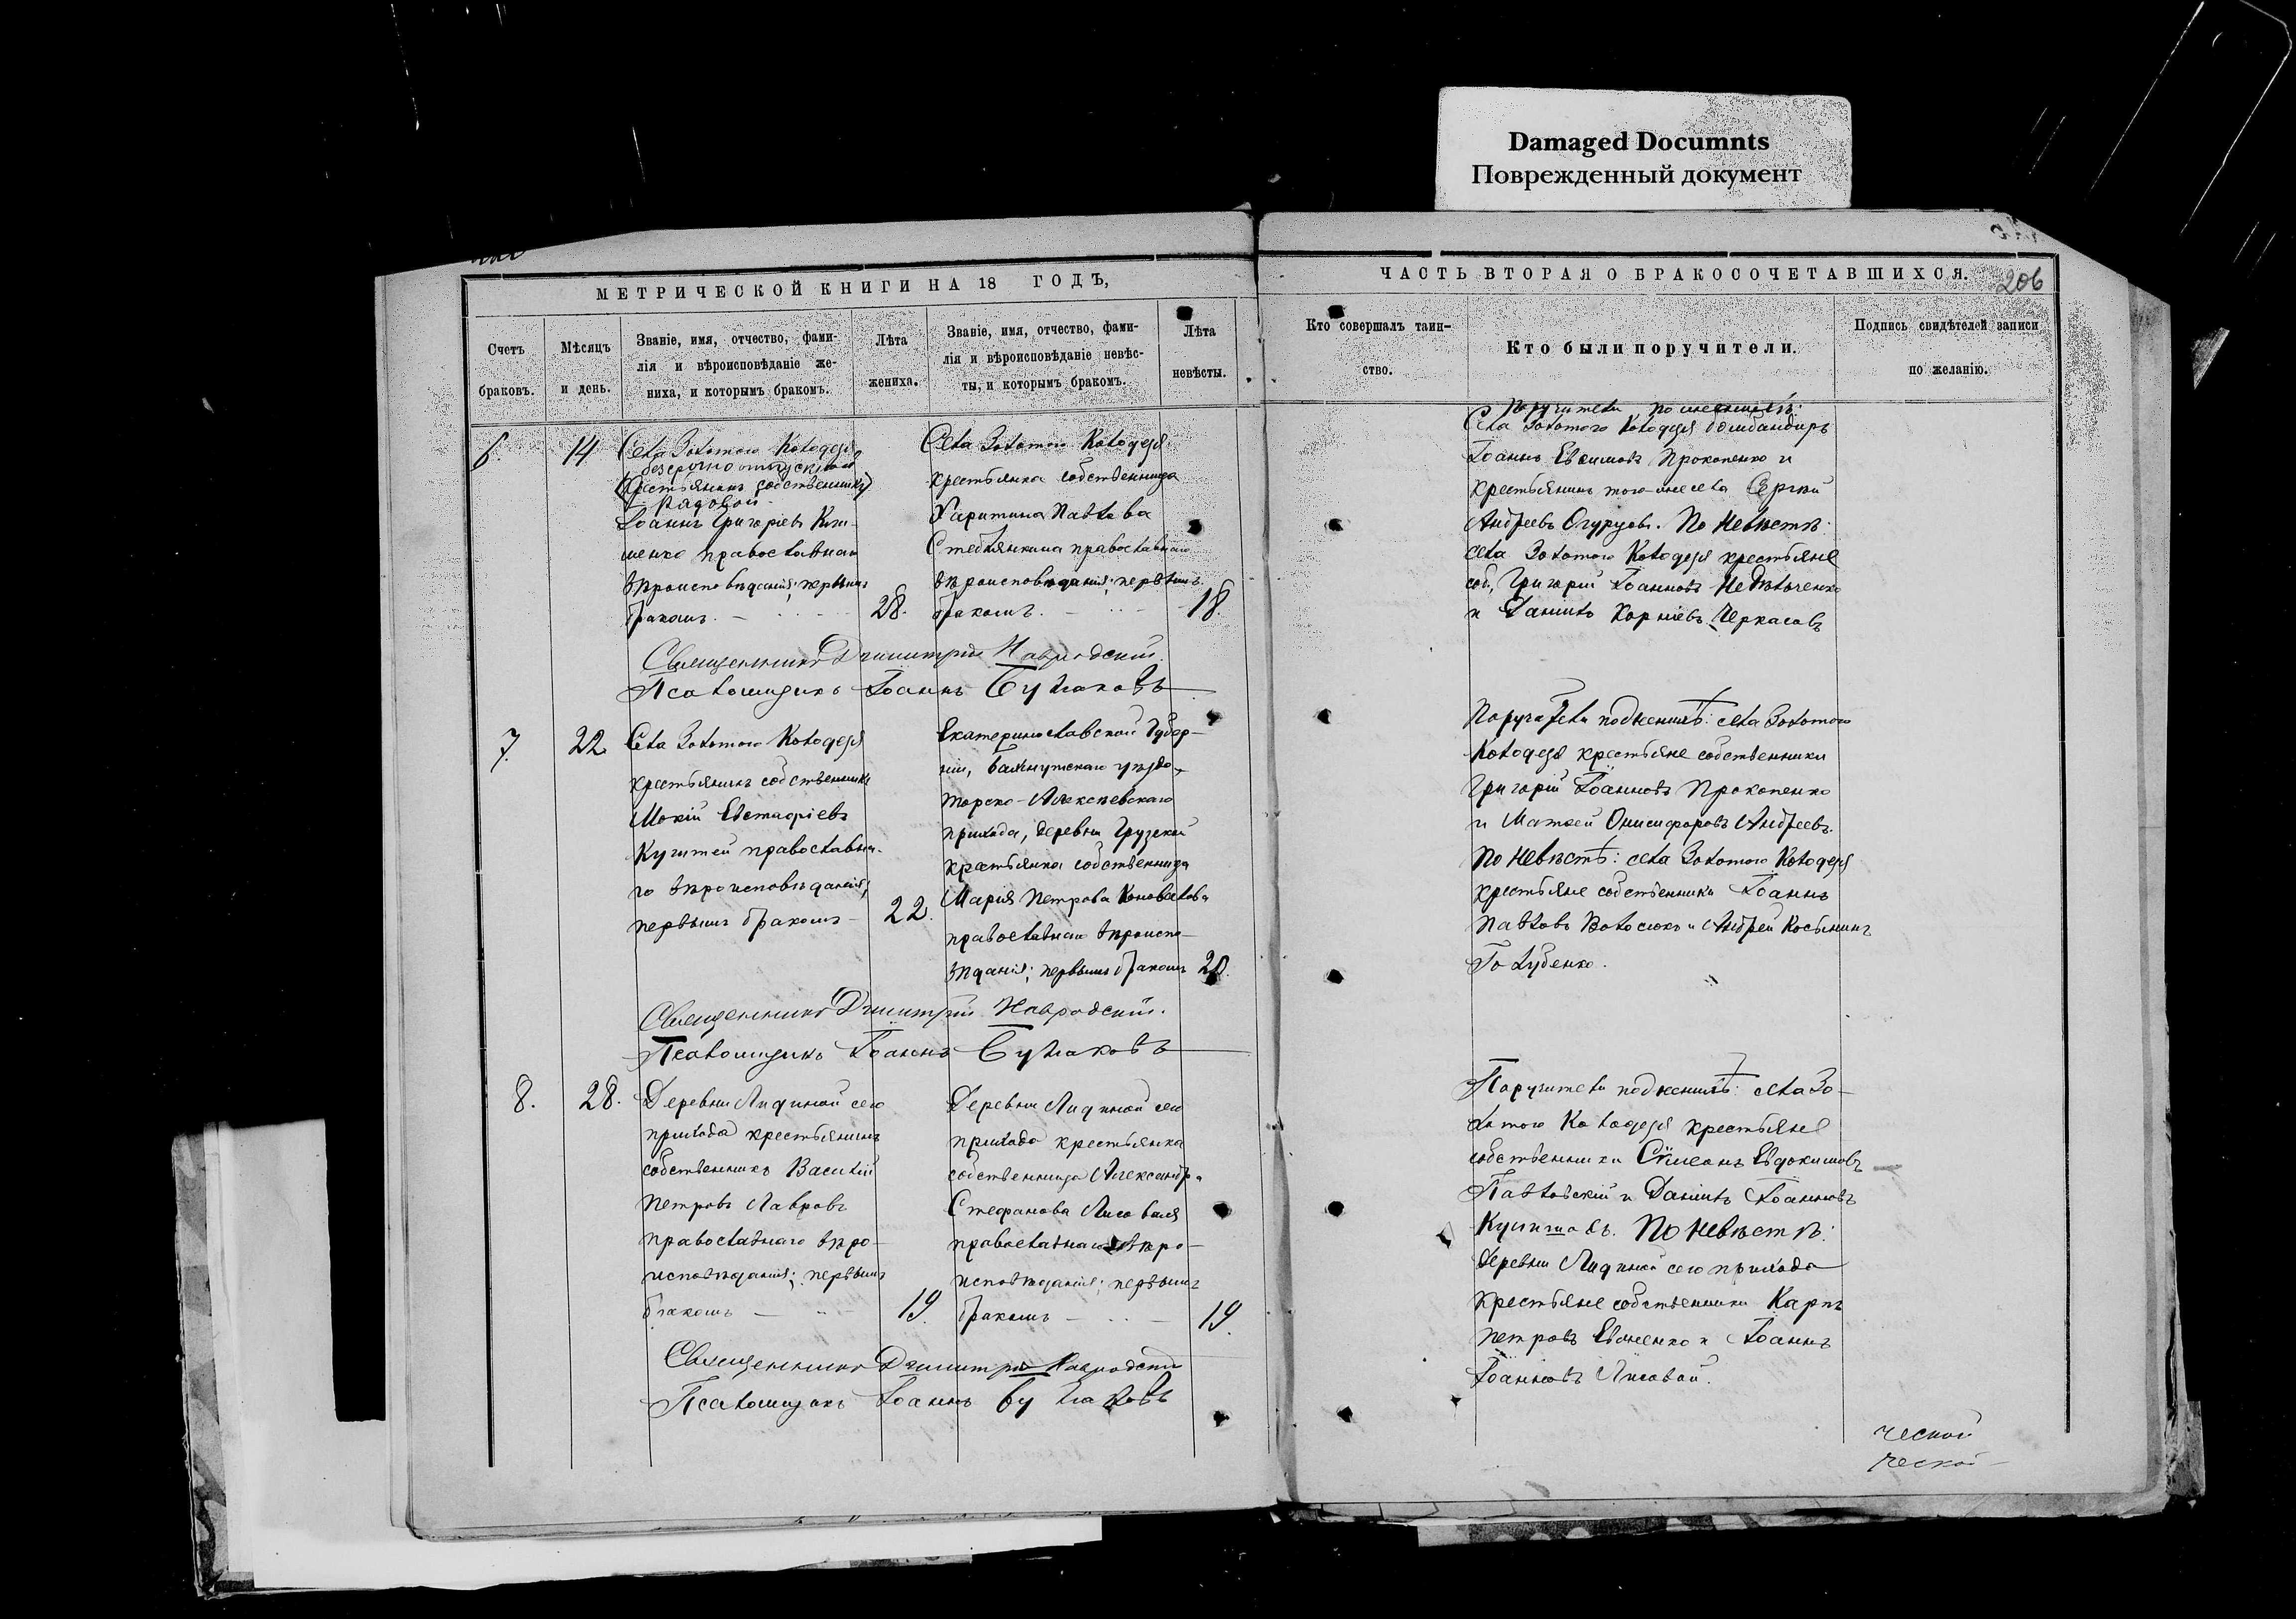 Damaged Documnts
Поврежденный документ
МЕТРИЧЕСКОЙ КНИГИ НА 18 ГОДЪ,
Счетъ
браковъ.
Мѣсяцъ
и день.
Званіе, имя, отчество, фами-
лія и вѣроисповѣданіе же-
ниха, и которымъ бракомъ.
Лѣта
жениха.
Званіе, имя, отчество, фами-
лія и вѣроисповѣданіе невѣс-
ты, и которымъ бракомъ.
Лѣта
невѣсты.
6.
14
Села Золотого Колодезя
безсрочноотпускной
(крестьянинъ собственникъ)
рядовой
Іоаннъ Григоріевъ
православнаго
вѣроисповѣданія; первымъ
бракомъ.
28.
Села Золотого Колодезя
крестьянка собственница
Харитина Павлова
православнаго
вѣроисповѣданія; первымъ
бракомъ.
18.
Священникъ Димитрій Навродскій.
Псаломщикъ Іоаннъ Булаковъ
7.
22
Села Золотого Колодезя
крестьянинъ собственникъ
Мокій Евстафіевъ
православна-
го вѣроисповѣданія;
первымъ бракомъ
22.
Екатеринославской Губер-
ніи, Бахмутскаго уѣзда,
Торско-Алексѣевскаго
прихода, деревни Грузской
крестьянка собственница
Марія Петрова Коновалова
православнаго вѣроиспо-
вѣданія; первымъ бракомъ
20.
Священникъ Димитрій Навродскій.
Псаломщикъ Іоаннъ Булаковъ
8.
28.
Деревни Лидиной сего
прихода крестьянинъ
собственникъ Василій
Петровъ Лавровъ
православнаго вѣро-
исповѣданія; первымъ
бракомъ
19.
Деревни Лидиной сего
прихода крестьянка
собственница Александра
Стефанова Лисовая
православнаго вѣро-
исповѣданія; первымъ
бракомъ
19.
Священникъ Димитрій Навродскій
Псаломщикъ Іоаннъ Булаковъ
ЧАСТЬ ВТОРАЯ О БРАКОСОЧЕТАВШИХСЯ.
206
Кто совершалъ таин-
ство.
Кто были поручители.
Подпись свидѣтелей записи
по желанію.
Поручители по женихѣ:
Села Золотого Колодезя бомбандиръ
Іоаннъ Евфимовъ Прокопенко и
крестьянинъ того-же села Сергѣй
Андреевъ Огурцовъ. По невѣстѣ:
села Золотого Колодезя крестьяне
соб. Григорій Іоанновъ
и Даніилъ Корніевъ Черкасовъ
Поручители по женихѣ: села Золотого
Колодезя крестьяне собственники
Григорій Іоанновъ Прокопенко
и Матѳей Онисифоровъ Андреевъ.
По невѣстѣ: села Золотого Колодезя
крестьяне собственники Іоаннъ
Павловъ Волосюкъ и Андрей Косьминъ
Голубенко.
Поручители по женихѣ: села Зо-
лотого Колодезя крестьяне
собственники Сѵмеонъ Евдокимовъ
Павловскій и Даніилъ Іоанновъ
По невѣстѣ:
деревни Лидиной сего прихода
крестьяне собственники Карпъ
Петровъ и Іоаннъ
Іоанновъ Лисовой.
ческой
ческой